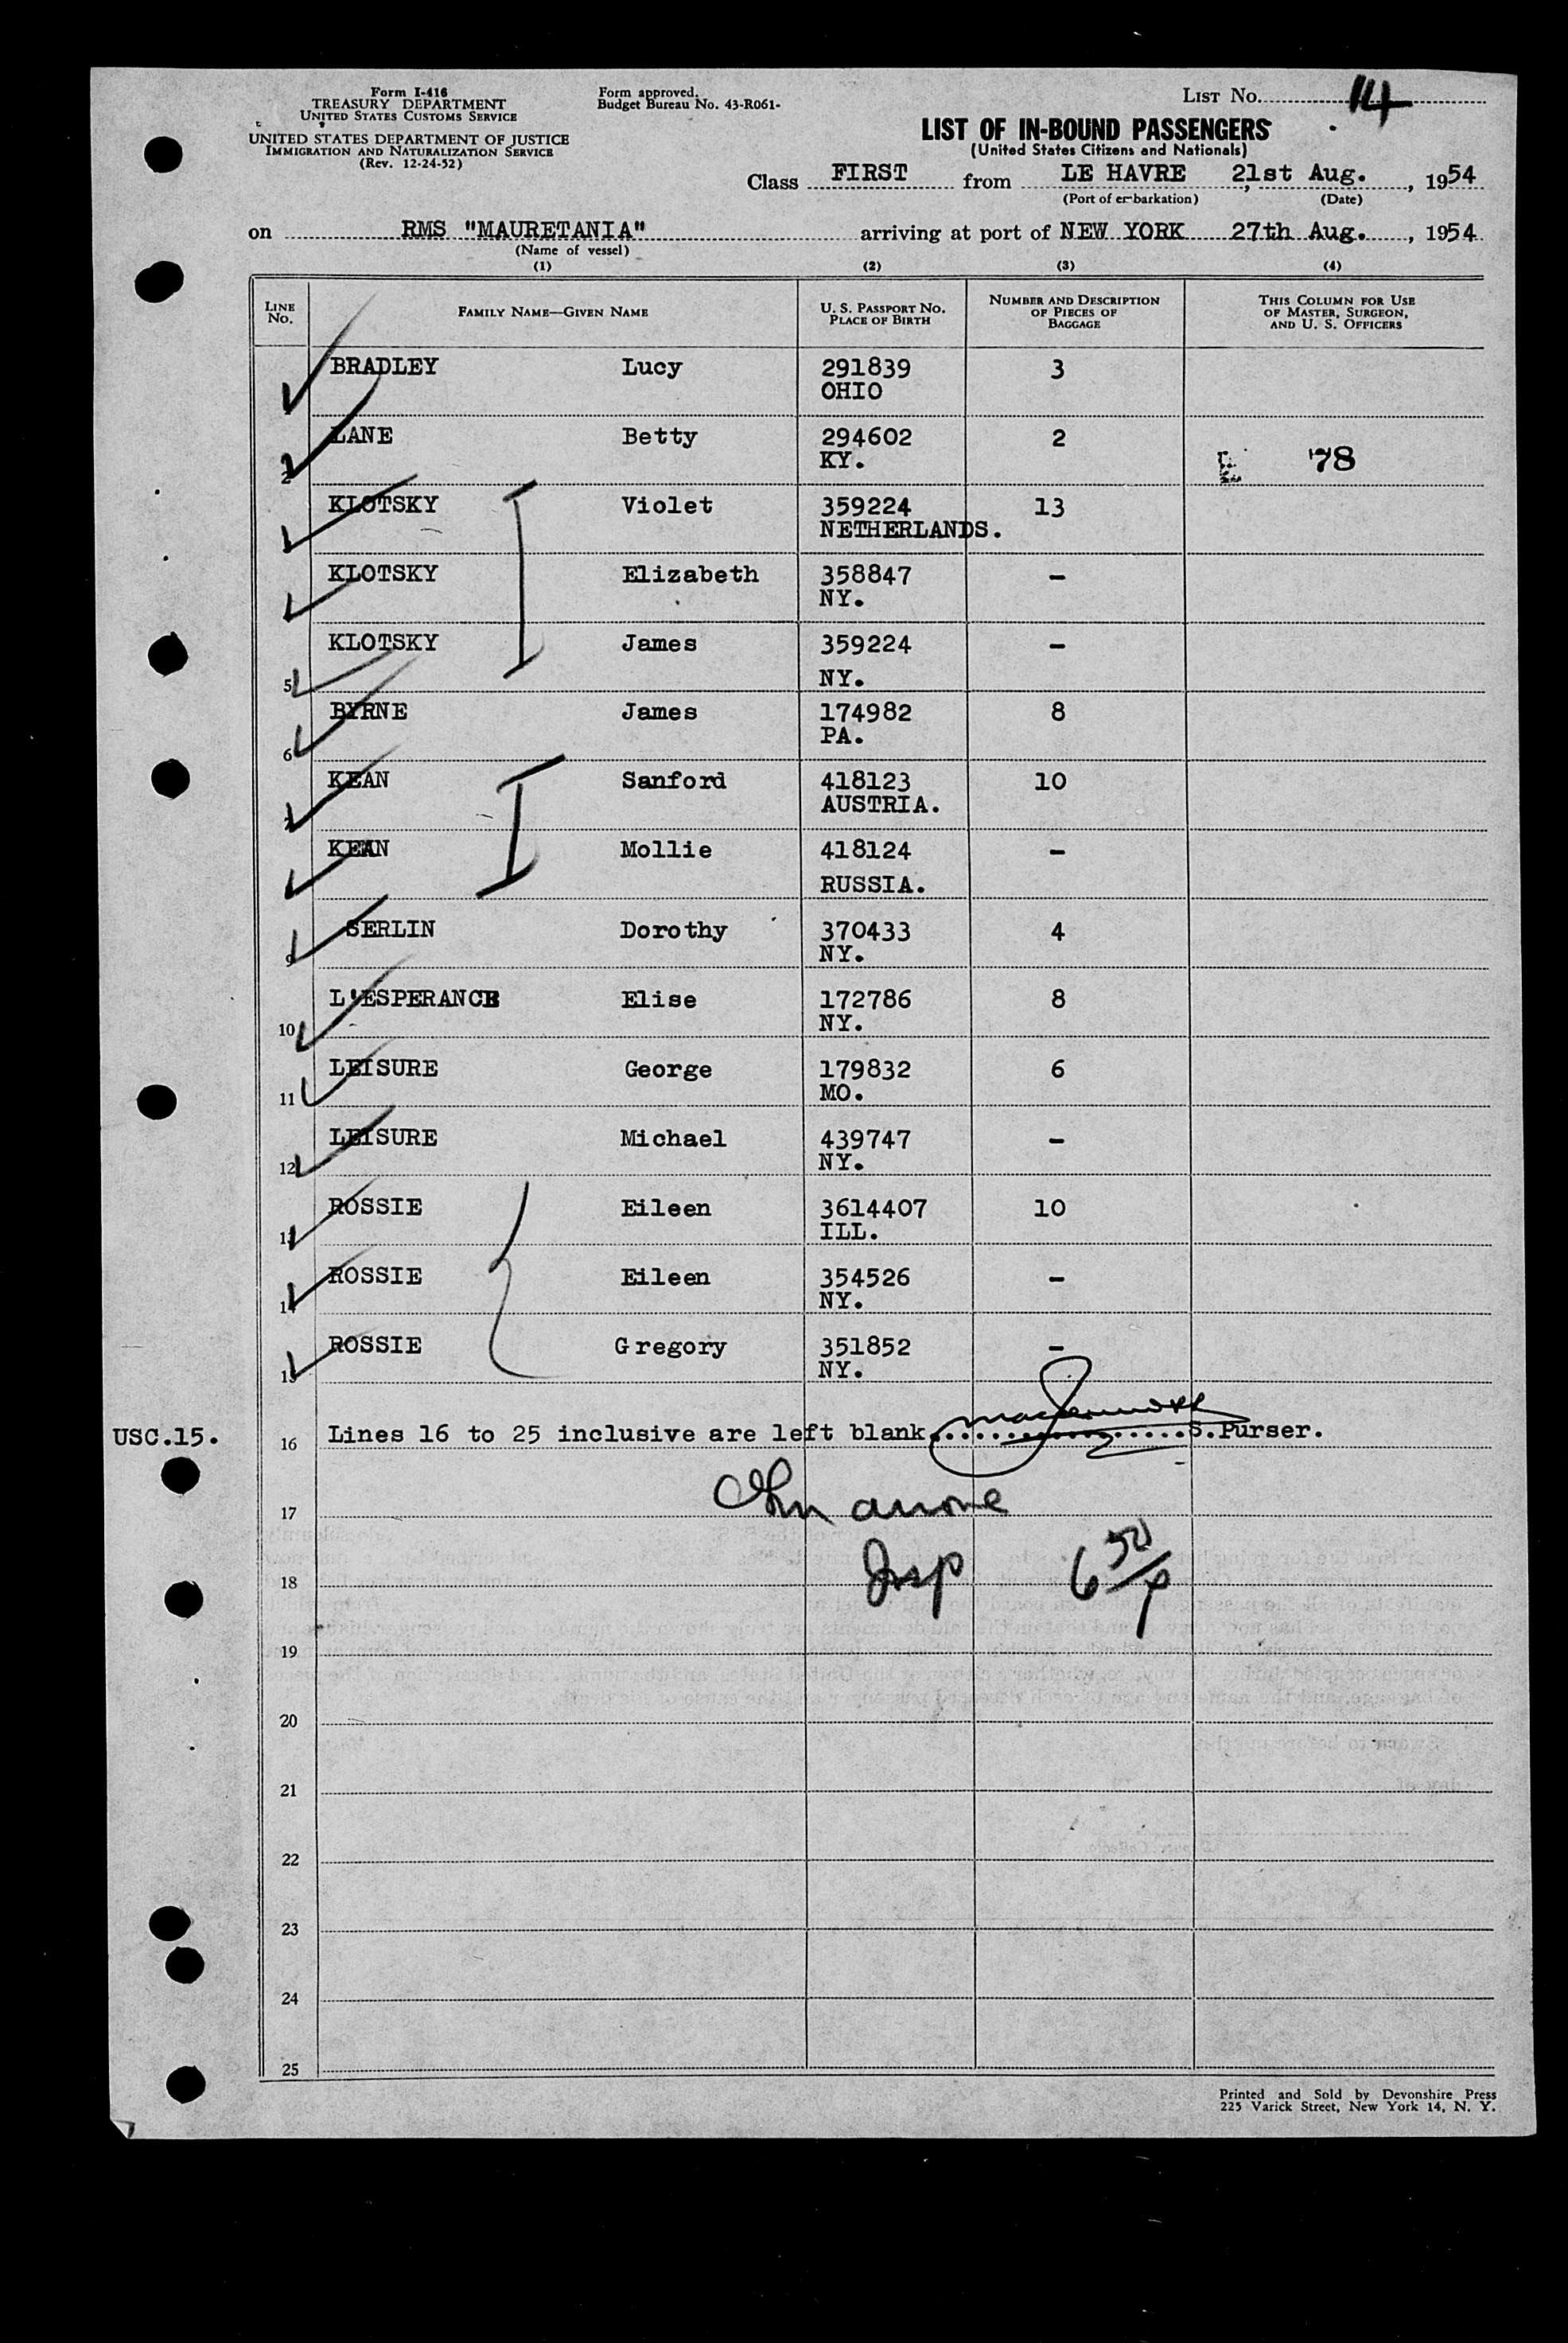 Form I-416
TREASURY DEPARTMENT
UNITED STATES CUSTOMS SERVICE
UNITED STATES DEPARTMENT OF JUSTICE
IMMIGRATION AND NATURALIZATION SERVICE
(Rev. 12-24-52)
Form approved.
Budget Bureau No. 43-R061-
LIST No. 114
LIST OF IN-BOUND PASSENGERS
(United States Citizens and Nationals)
Class FIRST from LE HAVRE 21st Aug., 1954
(Port of embarkation) (Date)
on RMS "MAURETANIA" arriving at port of NEW YORK 27th Aug., 1954
(Name of vessel)
(1) (2) (3) (4)
LINE No. FAMILY NAME—GIVEN NAME U. S. PASSPORT No. PLACE OF BIRTH NUMBER AND DESCRIPTION OF PIECES OF BAGGAGE THIS COLUMN FOR USE OF MASTER, SURGEON, AND U. S. OFFICERS
BRADLEY Lucy 291839 3
OHIO
LANE Betty 294602 2
2 KY. 78
KLOTSKY Violet 359224 13
NETHERLANDS.
KLOTSKY Elizabeth 358847 -
NY.
KLOTSKY James 359224 -
5 NY.
BYRNE James 174982 8
6 PA.
KEAN Sanford 418123 10
AUSTRIA.
KEAN Mollie 418124 -
RUSSIA.
SERLIN Dorothy 370433 4
9 NY.
L'ESPERANCE Elise 172786 8
10 NY.
LEISURE George 179832 6
11 MO.
LEISURE Michael 439747 -
12 NY.
ROSSIE Eileen 3614407 10
13 ILL.
ROSSIE Eileen 354526 -
14 NY.
ROSSIE Gregory 351852 -
15 NY.
USC.15. 16 Lines 16 to 25 inclusive are left blank..................S.Purser.
17
18 Insp 6 50/P
19
20
21
22
23
24
25
Printed and Sold by Devonshire Press
225 Varick Street, New York 14, N. Y.